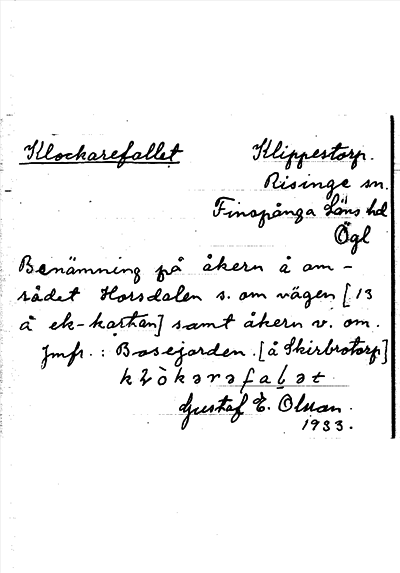 Klockarefallet Klippestorp.
Risinge sn.
Finspånga Läns hd
Ögl
Benämning på åkern å om-
rådet Horsdalen s. om vägen [13
å ek-kartan] samt åkern v. om.
Jmfr.: Bosejorden. [å Skirbrotorp]
Gustaf E. Olsson.
1933.